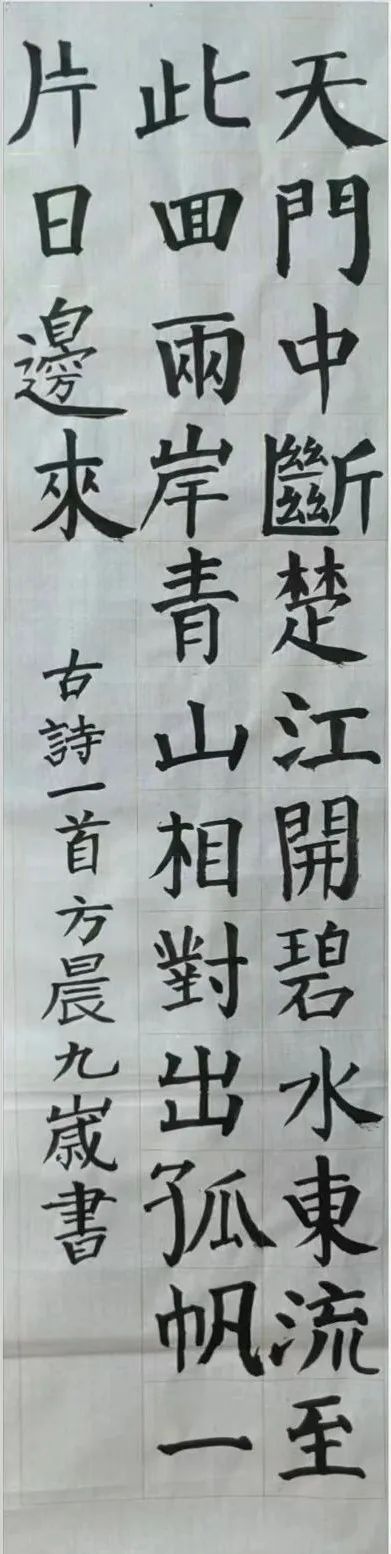 天門中斷楚江開碧水東流至
此回兩岸青山相對出孤帆一
片日邊來
古詩一首方晨九歲書